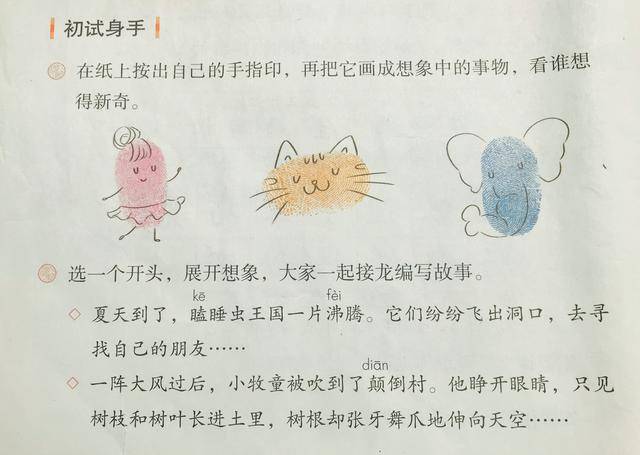 初试身手
在纸上按出自己的手指印，再把它画成想象中的事物，看谁想
得新奇。
选一个开头，展开想象，大家一起接龙编写故事。
kē fèi
◇ 夏天到了，瞌睡虫王国一片沸腾。它们纷纷飞出洞口，去寻
找自己的朋友……
diān
◇ 一阵大风过后，小牧童被吹到了颠倒村。他睁开眼睛，只见
树枝和树叶长进土里，树根却张牙舞爪地伸向天空……